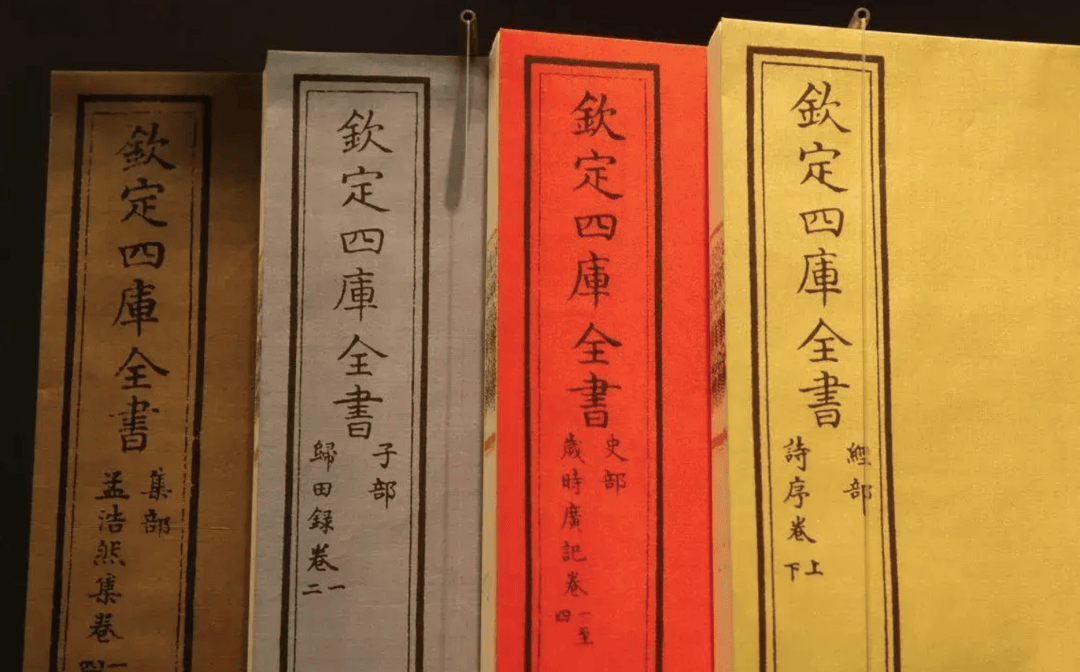 欽定四庫全書
經部
詩序卷上下
欽定四庫全書
史部
歲時廣記卷一至四
欽定四庫全書
子部
歸田録卷一二
欽定四庫全書
集部
孟浩然集卷一